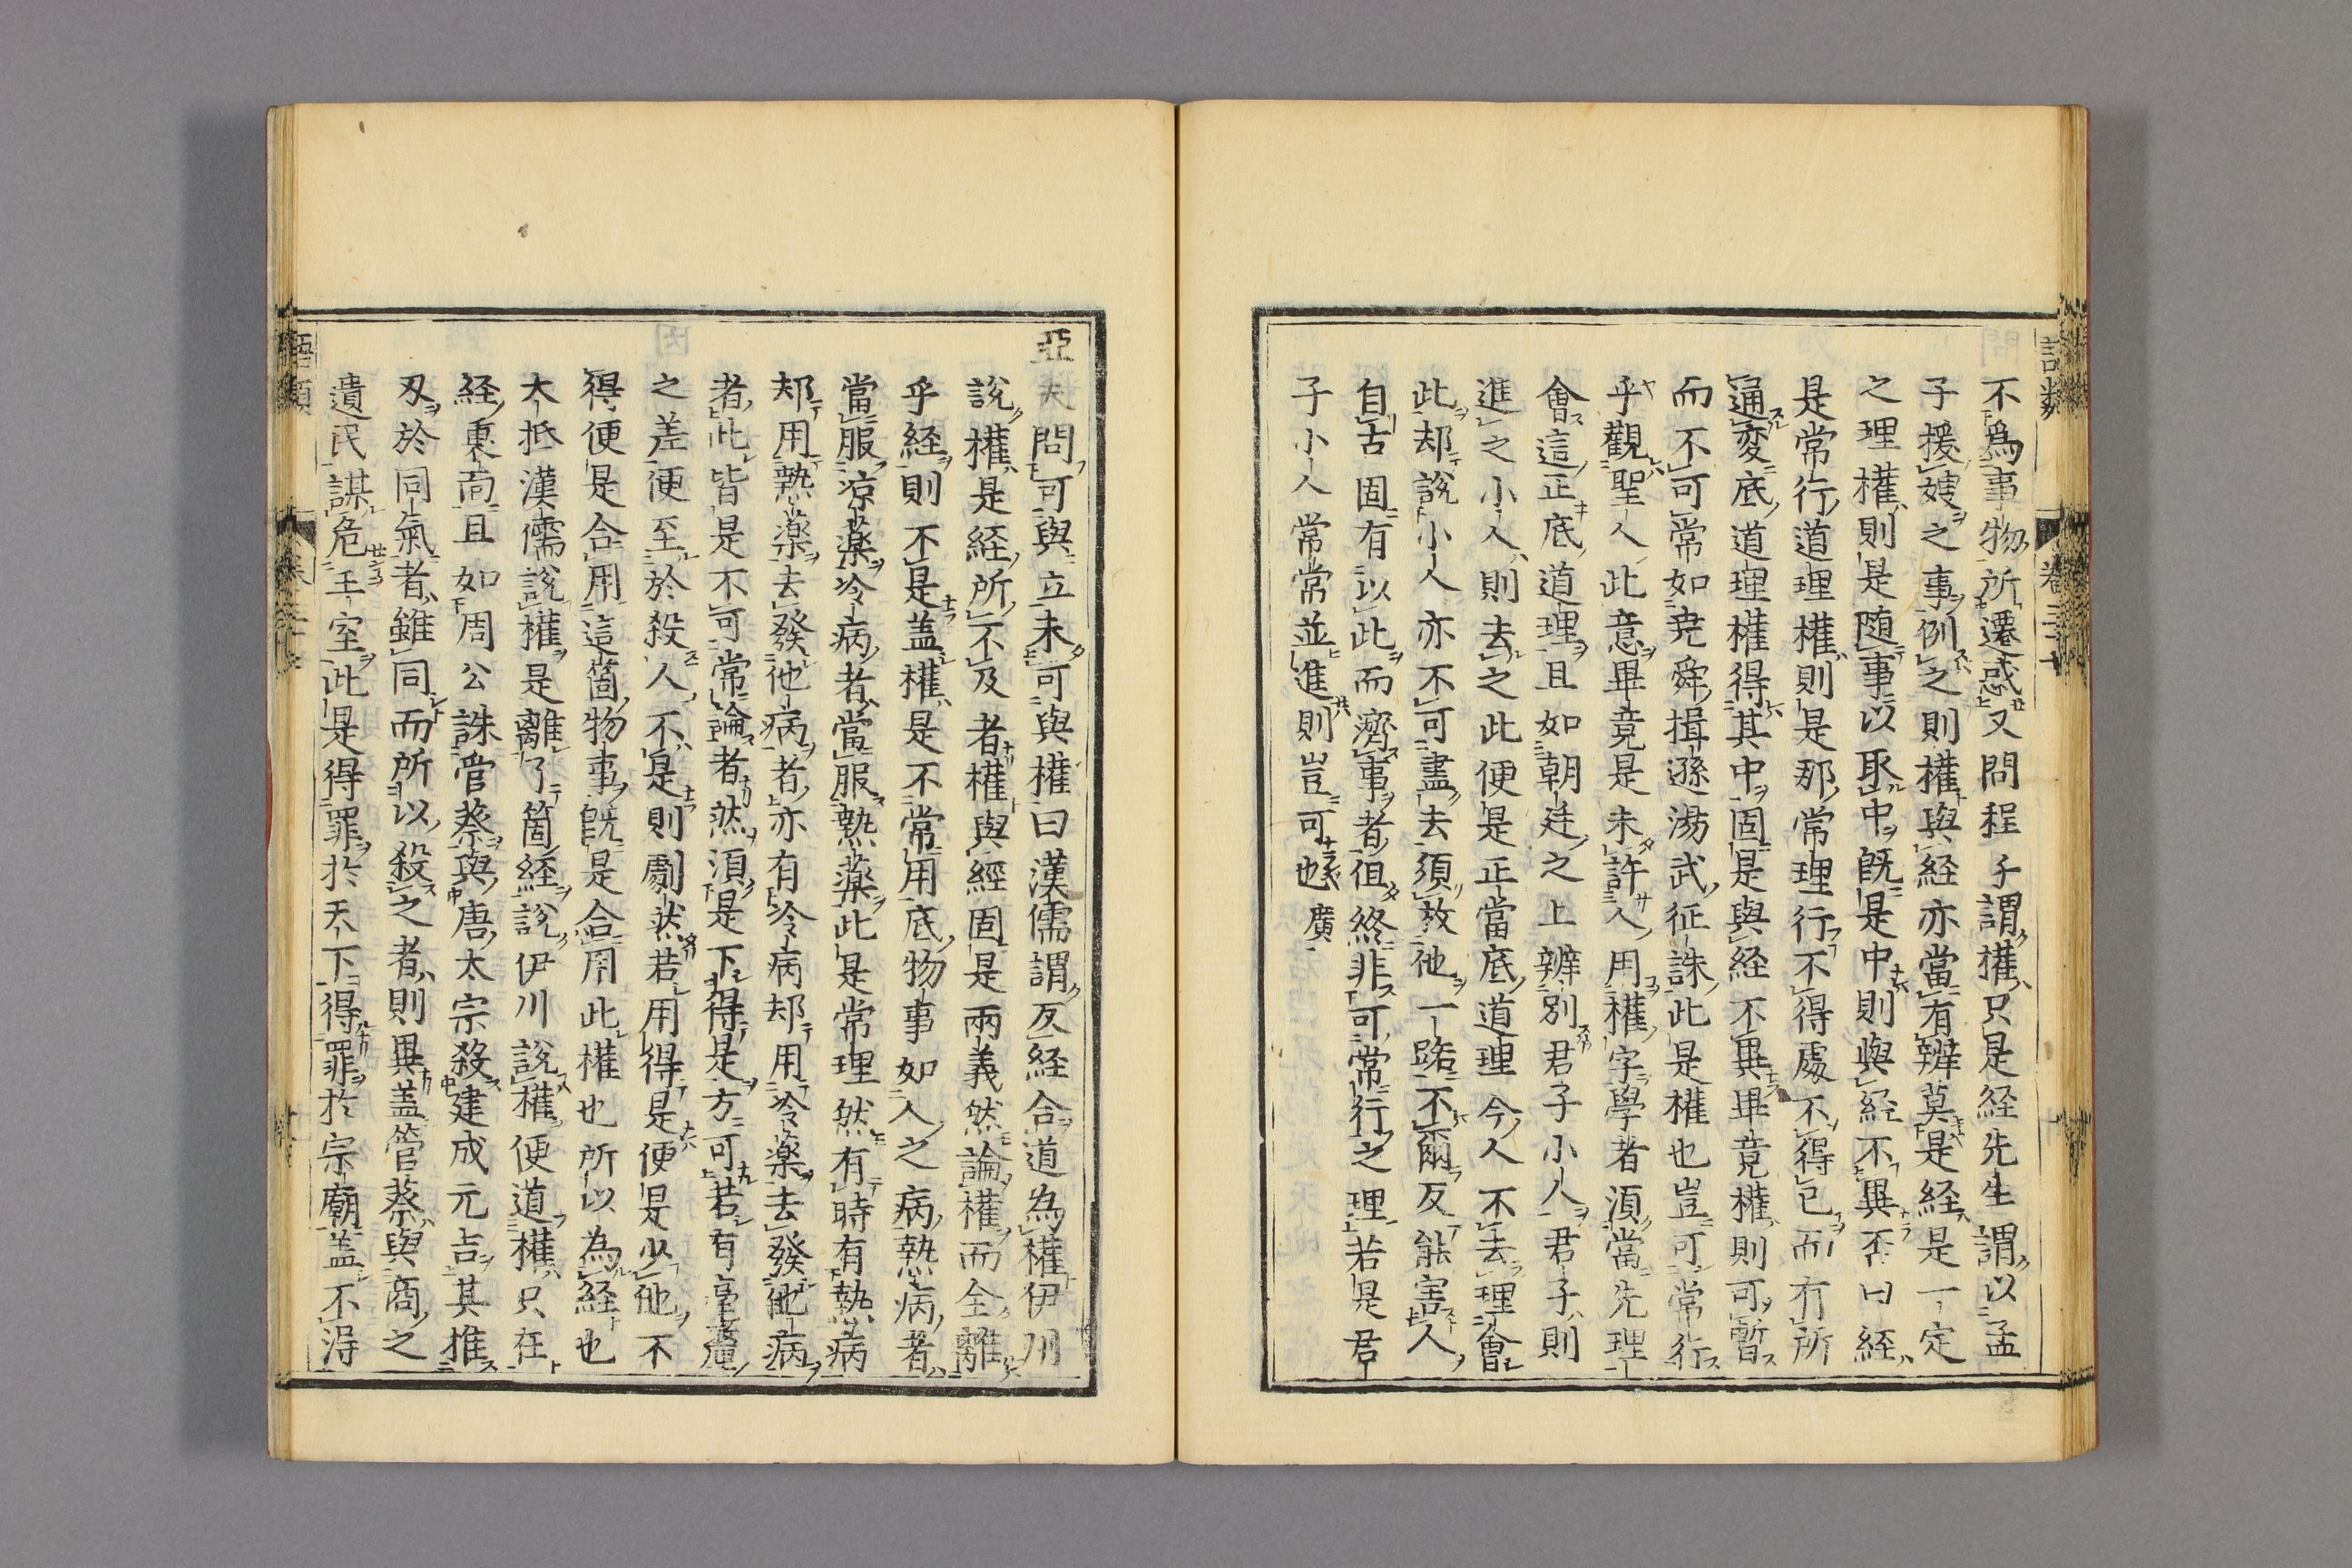 語類
卷三十七
不為事物所遷惑又問程子謂權只是経先生謂以孟
子援嫂之事例之則權與経亦當有辨莫是経是一定
之理權則是随事以取中既是中則與経不異否曰経
是常行道理權則是那常理行不得處不得已而有所
通変底道理權得其中固是與経不異畢竟權則可暫
而不可常如尭舜揖遜湯武征誅此是權也豈可常行
乎觀聖人此意畢竟是未許人用權字學者須當先理
會這正底道理且如朝廷之上辨別君子小人君子則
進之小人則去之此便是正當底道理今人不去理會
此却說小人亦不可盡去須放他一路不爾反能害人
自古固有以此而濟事者但終非可常行之理若是君
子小人常常並進則豈可也 廣
亞夫問可與立未可與權曰漢儒謂反経合道為權伊川
說權是経所不及者權與經固是兩義然論權而全離
乎経則不是蓋權是不常用底物事如人之病熱病者
當服凉薬冷病者當服熱薬此是常理然有時有熱病
却用熱薬去發他病者亦有冷病却用冷薬去發他病
者此皆是不可常論者然須是下得是方可若有毫釐
之差便至於殺人不是則劇然若用得是便是少他不
得便是合用這箇物事既是合用此權也所以為経也
大抵漢儒說權是離了箇経說伊川說權便道權只在
経裏面且如周公誅管蔡與唐太宗殺建成元吉其推
刃於同氣者雖同而所以殺之者則異蓋管蔡與商之
遺民謀危王室此是得罪於天下得罪於宗廟蓋不得
語類